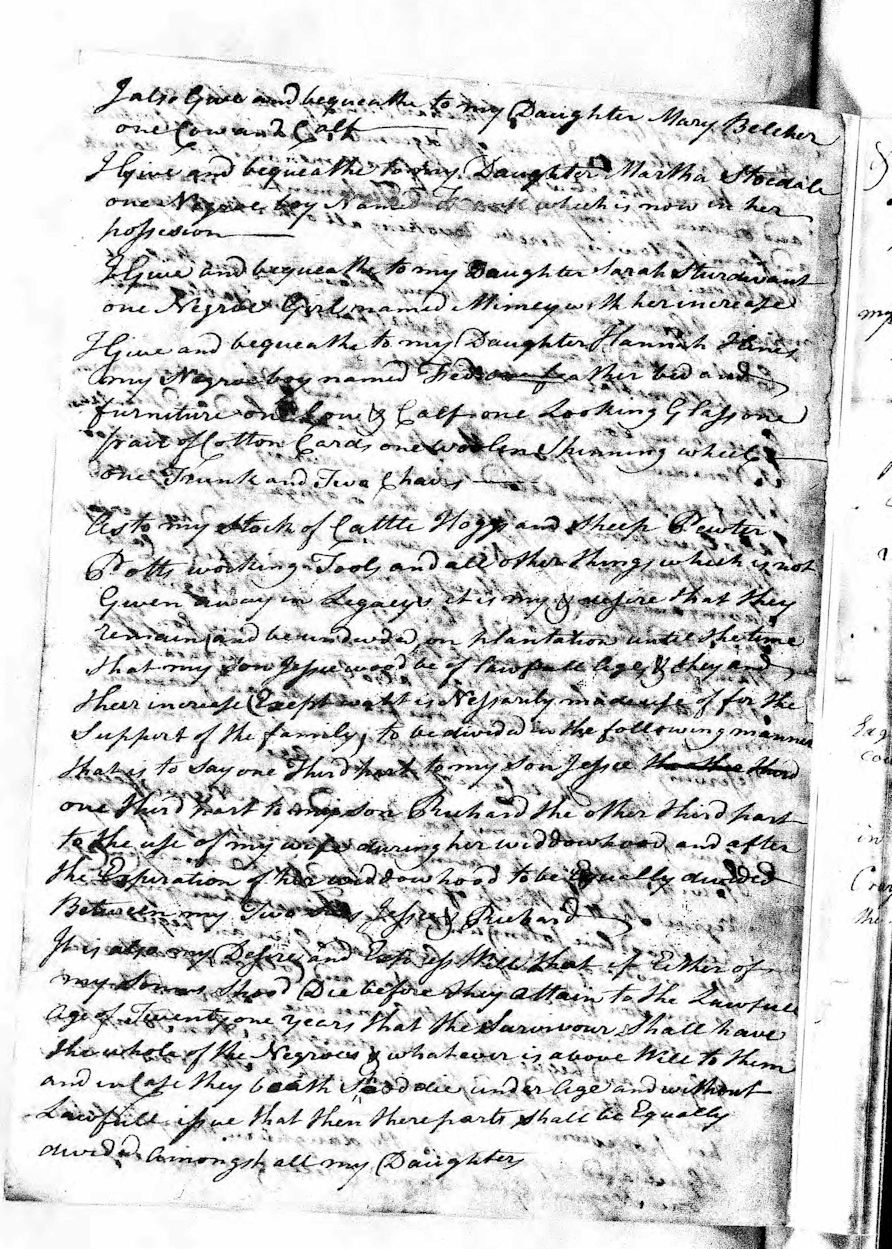 I also Give and bequeathe to my Daughter Mary Belcher
one Cow and Calf
I Give and bequeathe to my Daughter Martha
one Negroe boy Named which is now in her
possesion
I Give and bequeathe to my Daughter Sarah Sturdivant
one Negroe Girl named Mimey with her increase
I Give and bequeathe to my Daughter Hannah Hines
my Negroe boy named Fed one feather bed and
furniture one Cow & Calf one Looking Glass one
pair of Cotton Cards one woolen Spinning wheel
one Trunk and Two Chairs
As to my Stock of Cattle Hogs and Sheep Pewter
Potts working Tools and all other things which is not
Given away in Legacys it is my desire that they
remain and be undivded on plantation until the time
that my Son Jesse wood be of lawfull Age & they and
their increase Except what is Nessarily made use of for the
Support of the family, to be divided in the following manner
that is to say one Third part to my son Jessie the other third
one third part to my son Richard the other third part
to the use of my wife during her widdowhood and after
the Expiration of her widdowhood to be Equally divided
Between my Two Sons Jesse & Richard
It is also my Desire and Express Will that if Either of
my Sons Shood Die before they attain to the Lawfull
age of Twenty one years that the Survivour Shall have
the whole of the Negroes & whatever is above Will to them
and in Case they boath Shood die under Age and without
Lawfull issue that then there parts shall be Equally
divided Amongst all my Daughters